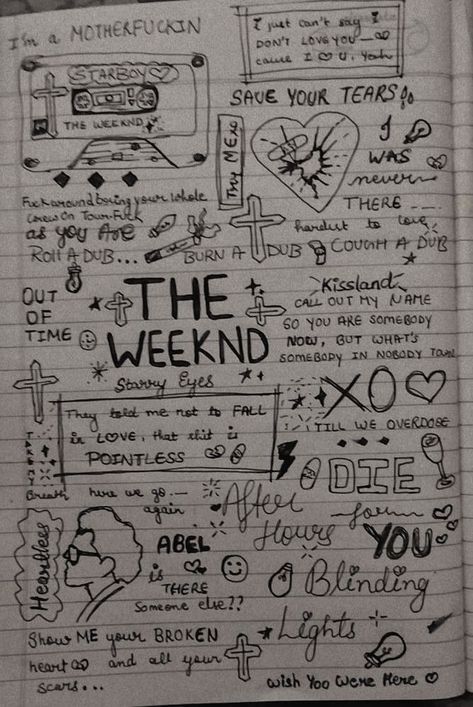 I'm a MOTHERFUCKIN
STARBOY
THE WEEKND
I just can't say I
DON'T LOVE YOU
cause I U, Yeah
SAVE YOUR TEARS
Try ME
I
WAS
never
THERE
Fuck around bring your whole
On Tour Fuck
as you ARE
ROLL A DUB... BURN A DUB COUGH A DUB
hardest to love
OUT
OF
TIME
THE
WEEKND
Kissland
CALL OUT MY NAME
SO YOU ARE SOMEBODY
NOW, BUT WHAT'S
SOMEBODY IN NOBODY TOWN
Starry Eyes
They told me not to FALL
in LOVE, that shit is
POINTLESS
TAKE MY
Breath
XO
TILL WE OVERDOSE
DIE
For
YOU
here we go...
again
After
Hours
Heartless
ABEL
is
THERE
Someone else??
Blinding
Lights
Show ME your BROKEN
heart and all your
scars...
Wish You Were Here